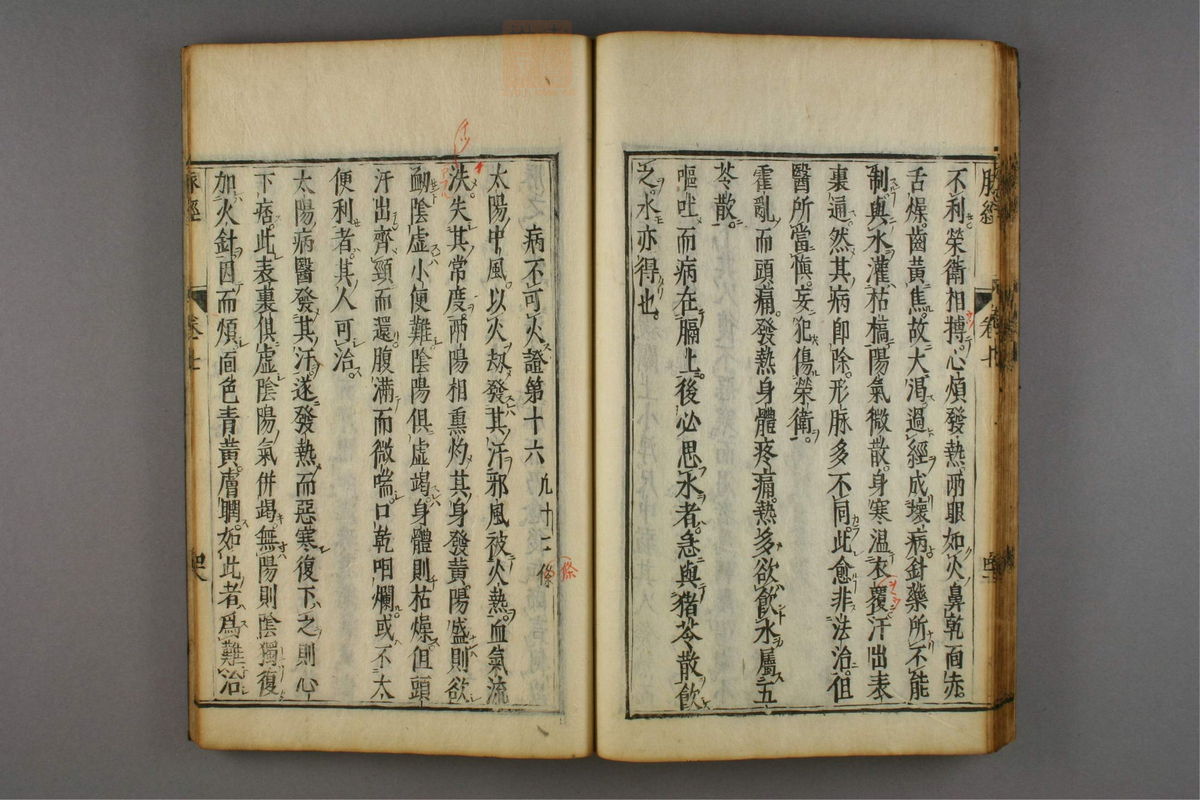 脉經 卷七
不利榮衛相摶心煩發熱兩眼如火鼻乾面赤
舌燥齒黃焦故大渴過經成壞病針藥所不能
制與水灌枯槁陽氣微散身寒温衣覆汗出表
裏通然其病即除形脉多不同此愈非法治但
醫所當愼妄犯傷榮衛
霍亂而頭痛發熱身體疼痛熱多欲飮水屬五
苓散
嘔吐而病在膈上後必思水者急與猪苓散飮
之水亦得也
病不可火證第十六
太陽中風以火劫發其汗邪風被火熱血氣流
泆失其常度兩陽相熏灼其身發黃陽盛則欲
衂陰虛小便難陰陽俱虛竭身體則枯燥但頭
汗出齊頸而還腹滿而微喘口乾咽爛或不大
便利者其人可治
太陽病醫發其汗遂發熱而惡寒復下之則心
下痞此表裏俱虛陰陽氣併竭無陽則陰獨復
加火針因而煩面色青黃膚瞤如此者爲難治
脉經 卷七